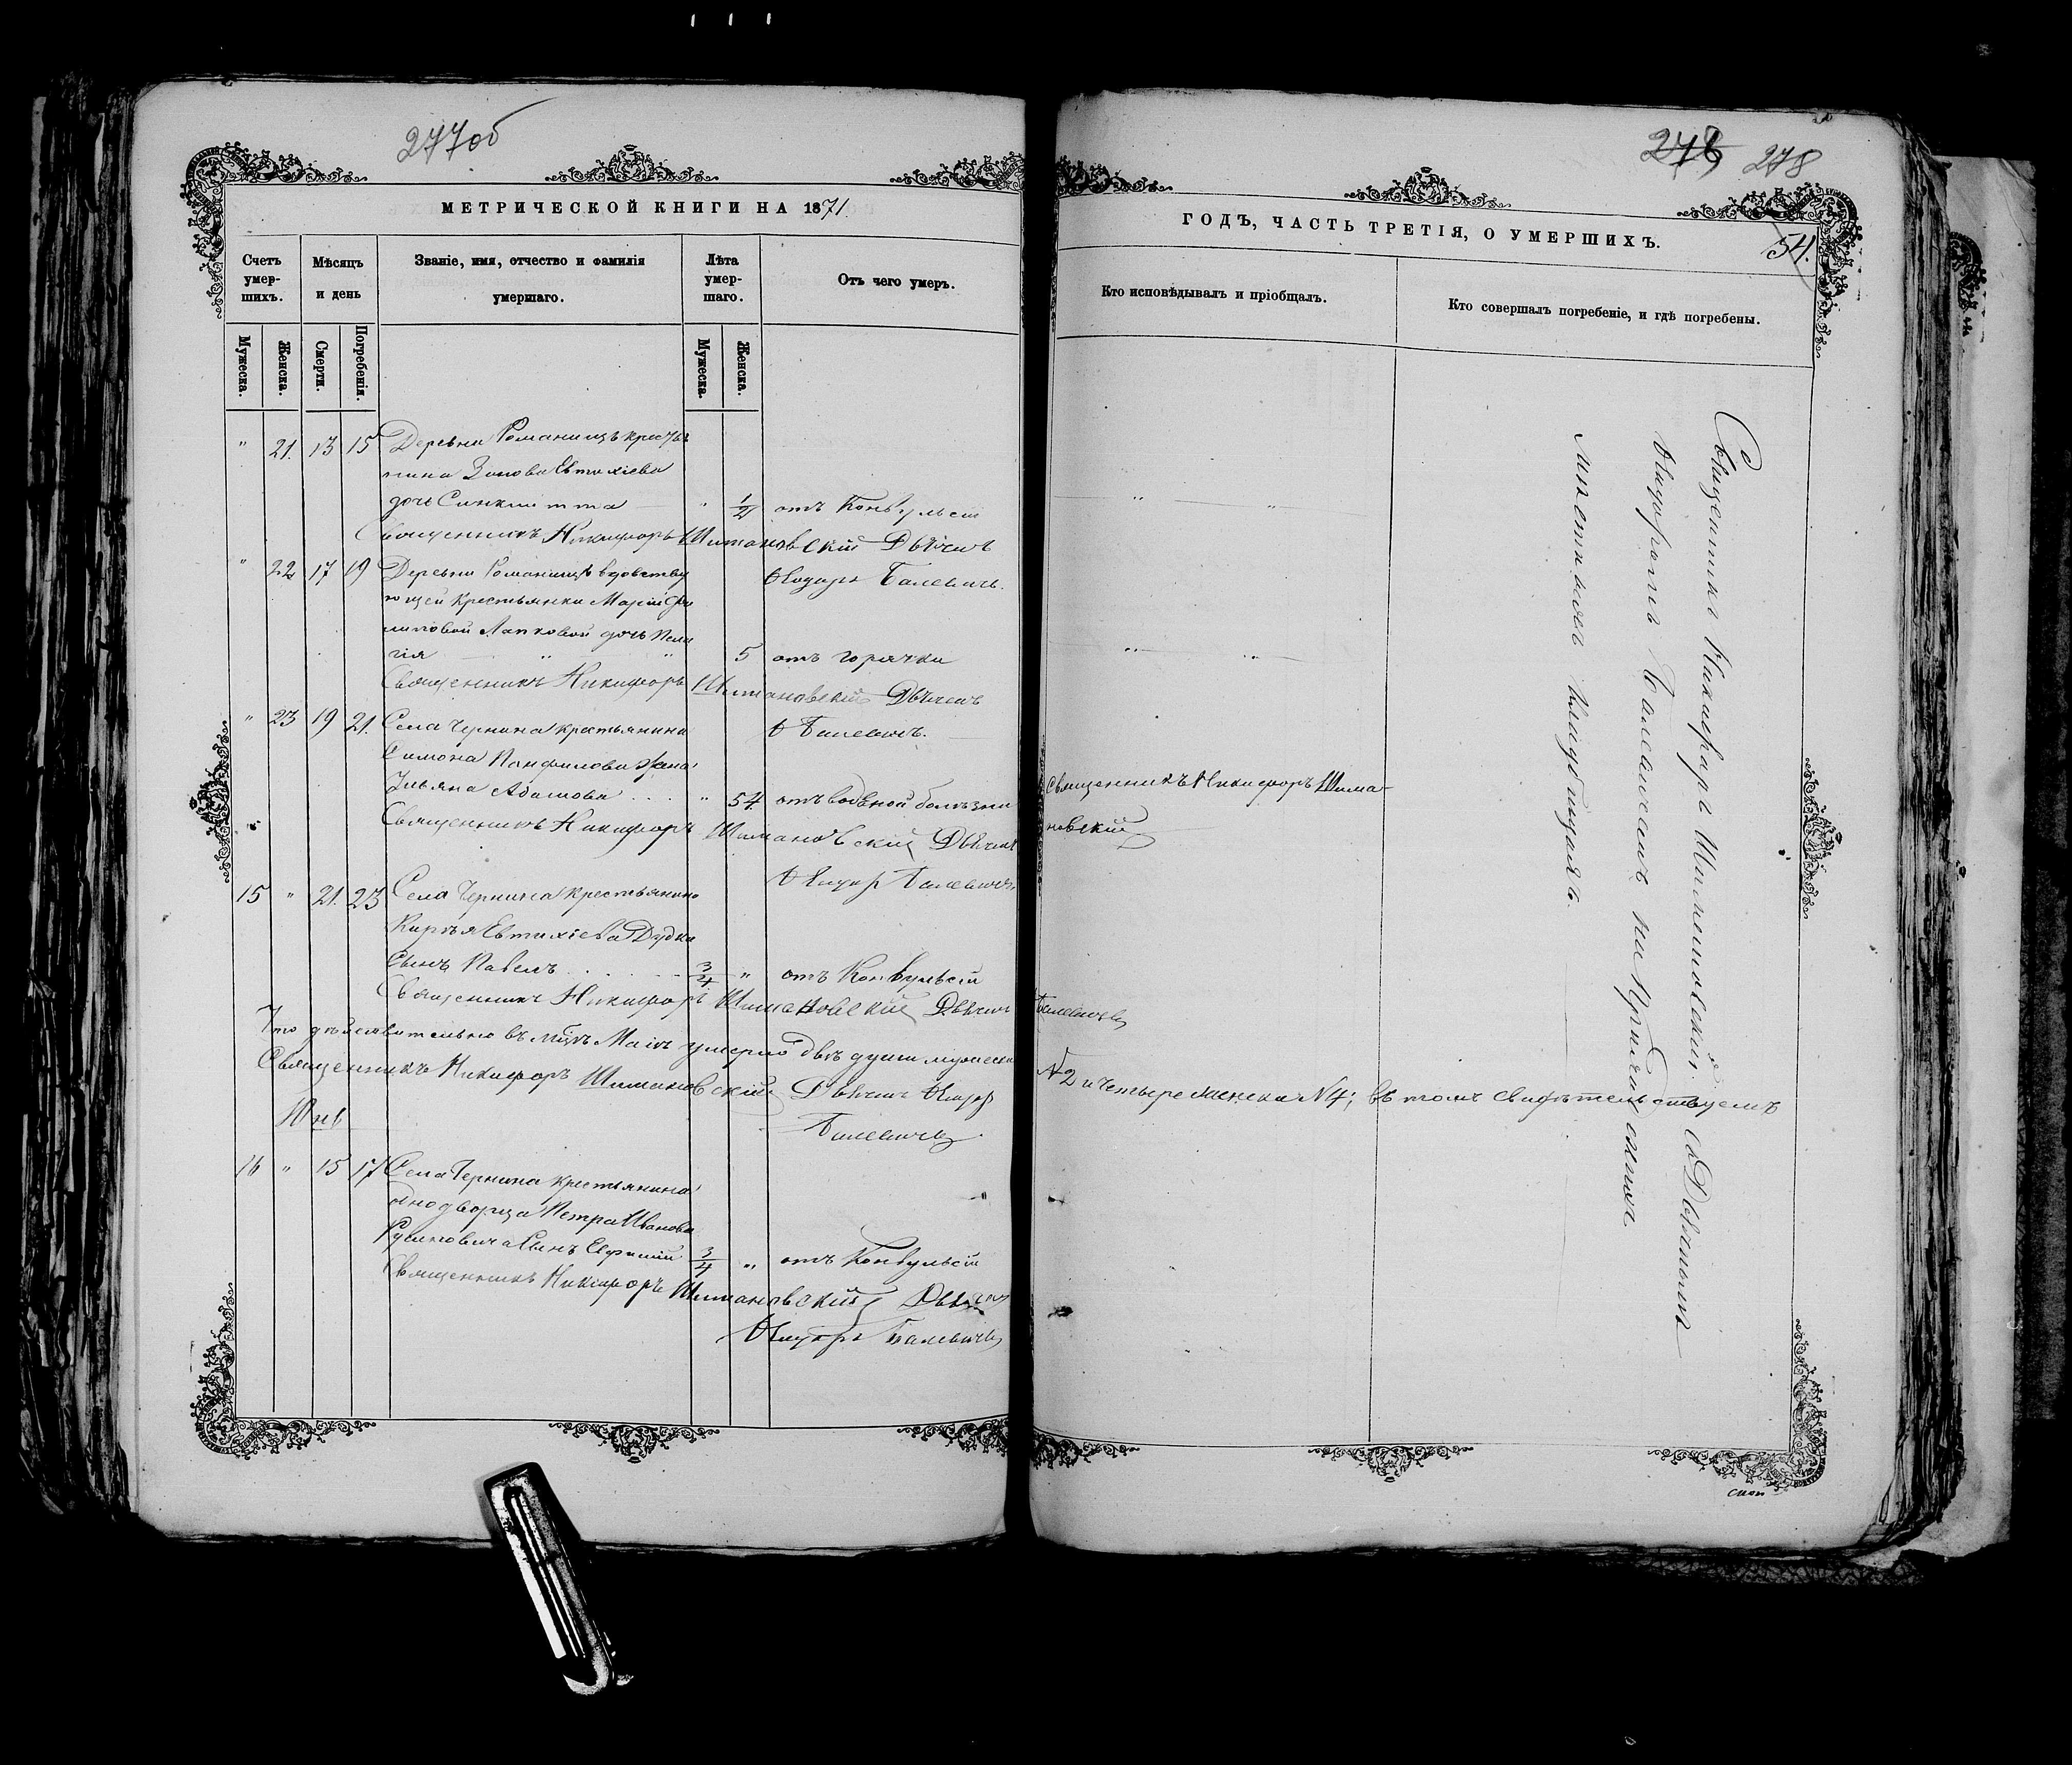 277об
МЕТРИЧЕСКОЙ КНИГИ НА 1871.
Счетъ умер-шихъ.
Мѣсяцъ и день
Званіе, имя, отчество и фамилія умершаго.
Лѣта умер-шаго.
Отъ чего умеръ.
Мужеска.
Женска.
Смерти.
Погребенія.
Мужеска.
Женска.
" 21. 13 15 Деревни Романищъ кресть
янина Евтихіева
дочь " 1/2 отъ Конвульсій
Священникъ Никифоръ Шимановскій Дьячекъ
" 22 17 19 Деревни Романищъ вдовству Балевичъ.
ющей Крестьянки Маріи Фи
липовой Лапковой дочь Пела
гія " " 5 отъ горячки
Священникъ Никифоръ Шимановскій Дьячекъ
" 23 19 21. Села Чернина крестьянина Балевичъ.
Симона Панфилова жена
Ульяна Адамова " 54 отъ водяной болѣзни
Священникъ Никифоръ Шимановскій Дьячекъ
Балевичъ
15 " 21. 23 Села Чернина Крестьянина
Евтихіева Дудки
Сынъ Павелъ 3/4 " отъ Конвульсій
Священникъ Никифоръ Шимановскій Дьячекъ Балевичъ
Что дѣйствительно въ мцѣ Маіѣ умерло двѣ души мужеска
Священникъ Никифоръ Шимановскій Дьячекъ
Балевичъ
16 " 15 17 Села Чернина крестьянина
однодворца Петра Иванова
Русиновича Сынъ 3/4 " отъ Конвульсій
Священникъ Никифоръ Шимановскій
Балевичъ
278
54.
ГОДЪ, ЧАСТЬ ТРЕТІЯ, О УМЕРШИХЪ.
Кто исповѣдывалъ и пріобщалъ.
Кто совершалъ погребеніе, и гдѣ погребены.
" "
" "
Священникъ Никифоръ Шима-
новскій
№ 2 и четыре женска № 4; въ томъ свидѣтельствуемъ
Священникъ Никифоръ Шимановскій съ Дьячкомъ
Балевичемъ на
кладбищахъ.